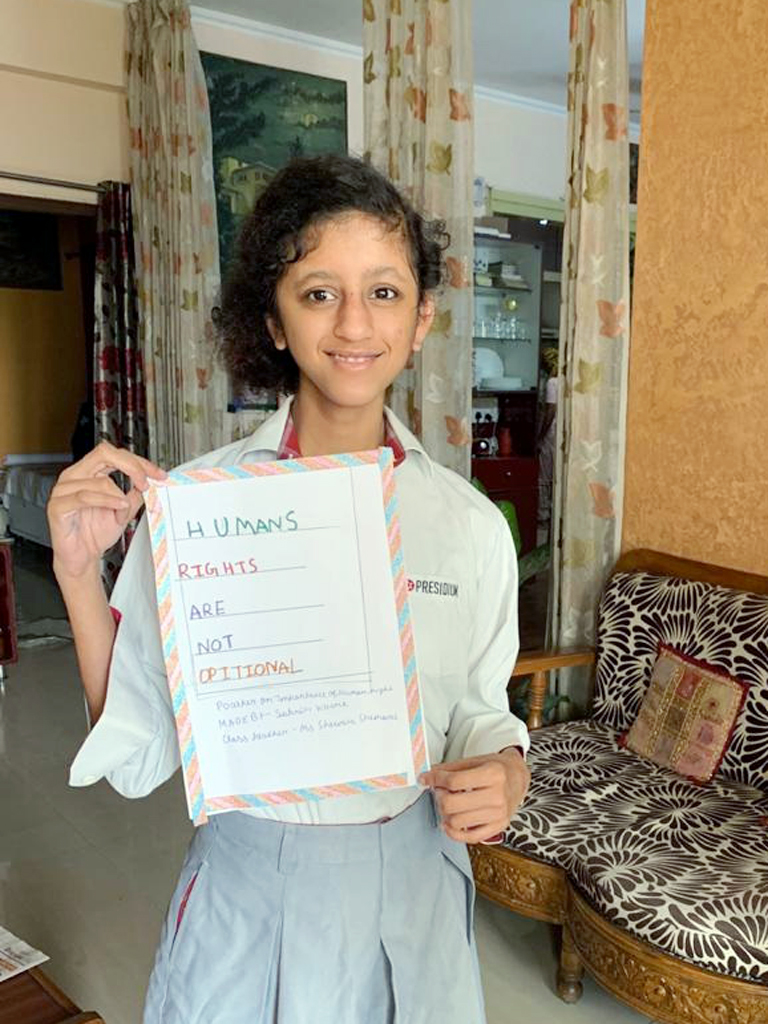 HUMANS
RIGHTS
ARE
NOT
OPITIONAL
Poaster on Importance of Human right
MADE BY - 
Class teacher - Ms
PRESIDIUM